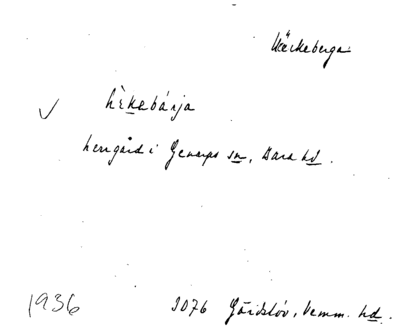 Häckeberga
✓ hɛ̀kabárja
herrgård i Genarps sn, Bara hd.
1936 3076 Gärdslöv, Vemm. hd.